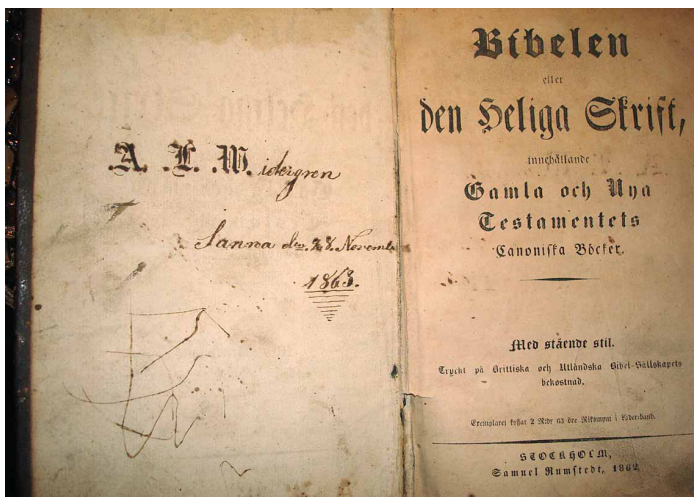 A. L. Widergren
Sanna den 28. Novemb
1863.
Bibelen
eller
den Heliga Skrift,
innehållande
Gamla och Nya
Testamentets
Canoniska Böcker.
Med stående stil.
Tryckt på Brittiska och Utländska Bibel-Sällskapets
bekostnad.
Exemplaret kostar 2 R:dr 63 öre Riksmynt i Läderband.
STOCKHOLM,
Samuel Rumstedt, 1862